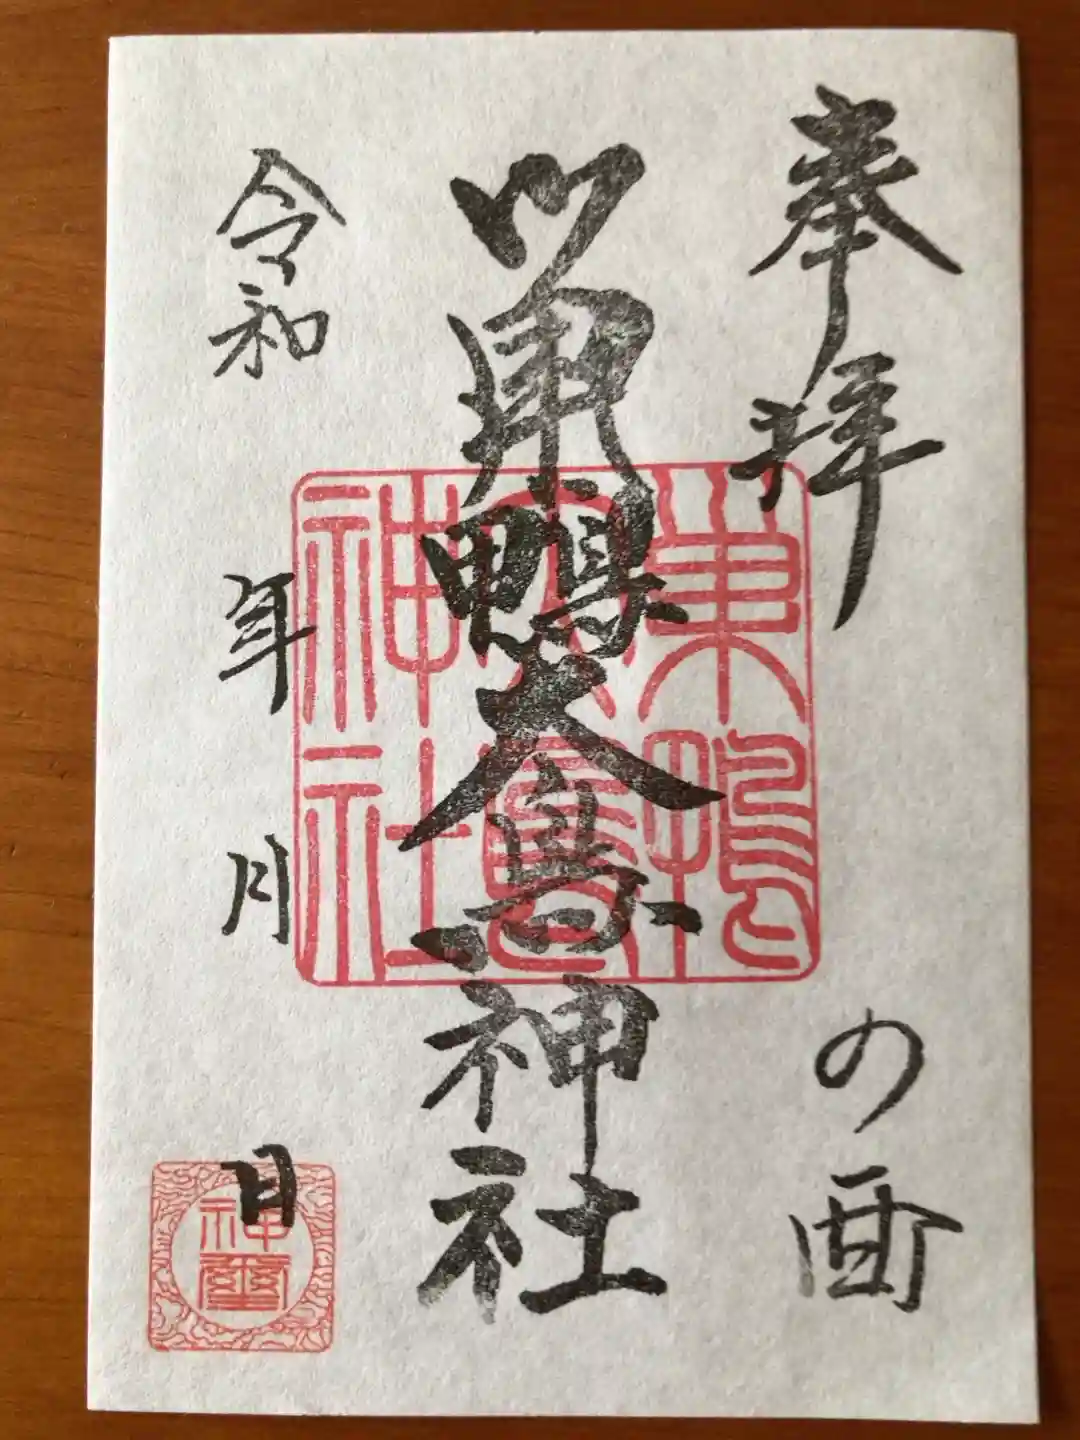 奉拝 の酉
巣鴨大鳥神社
令和 年 月 日
巣鴨
大鳥
神社
神璽